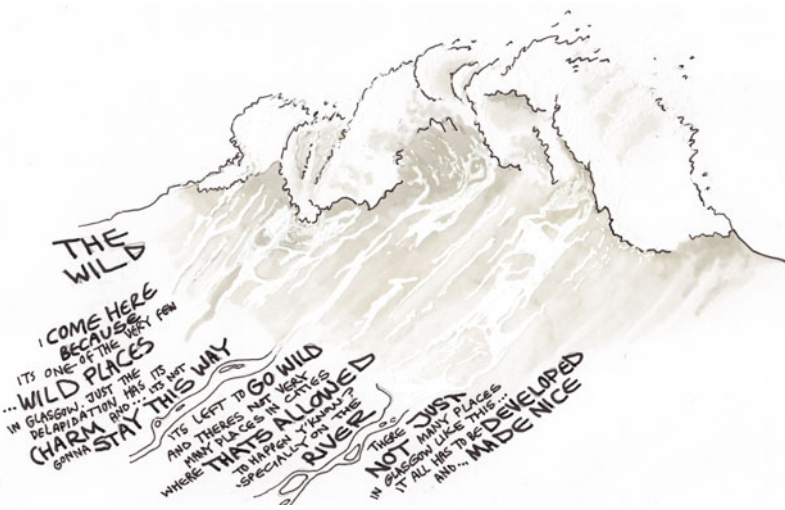 THE
WILD
I COME HERE
BECAUSE
ITS ONE OF THE VERY FEW
... WILD PLACES
IN GLASGOW. JUST THE
DELAPIDATION HAS ITS
CHARM AND... ITS NOT
GONNA STAY THIS WAY
ITS LEFT TO GO WILD
AND THERES NOT VERY
MANY PLACES IN CATIES
WHERE THATS ALLOWED
TO HAPPEN Y'KNOW?
'SPECIALLY ON THE
RIVER
THERE JUST
NOT MANY PLACES
IN GLASGOW LIKE THIS...
IT ALL HAS TO BE DEVELOPED
AND... MADE NICE